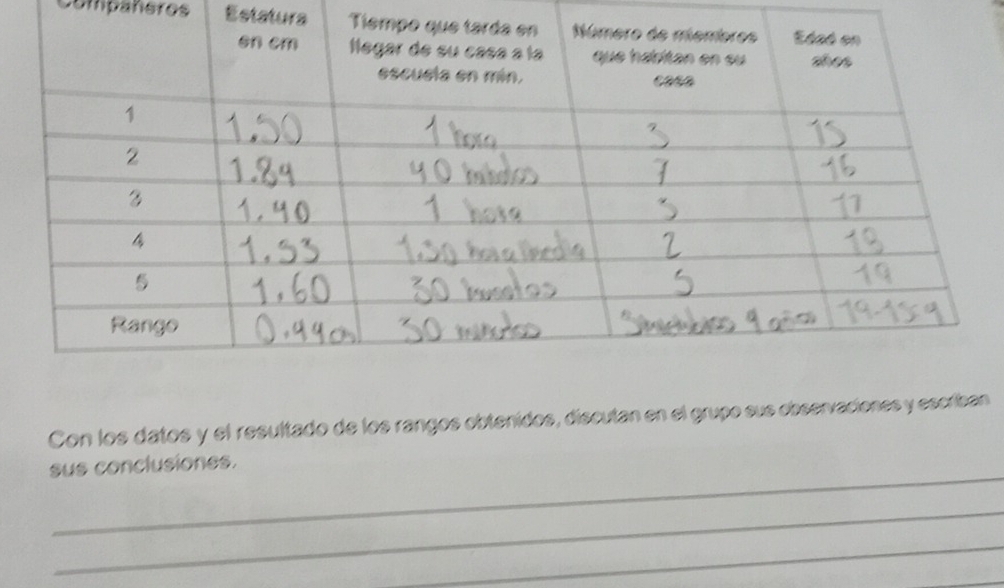 Compañeros Estatura en cm Tiempo que tarda en llegar de su casa a la escuela en min. Número de miembros que habitan en su casa Edad en años
1 1.50 1 hora 3 15
2 1.84 40 minutos 7 16
3 1.40 1 hora 3 17
4 1.53 1.30 hora media 2 18
5 1.60 30 minutos 5 19
Rango 0.44 cm 30 minutos 3 miembros 4 años 19-15=4
Con los datos y el resultado de los rangos obtenidos, discutan en el grupo sus observaciones y escriban
sus conclusiones.